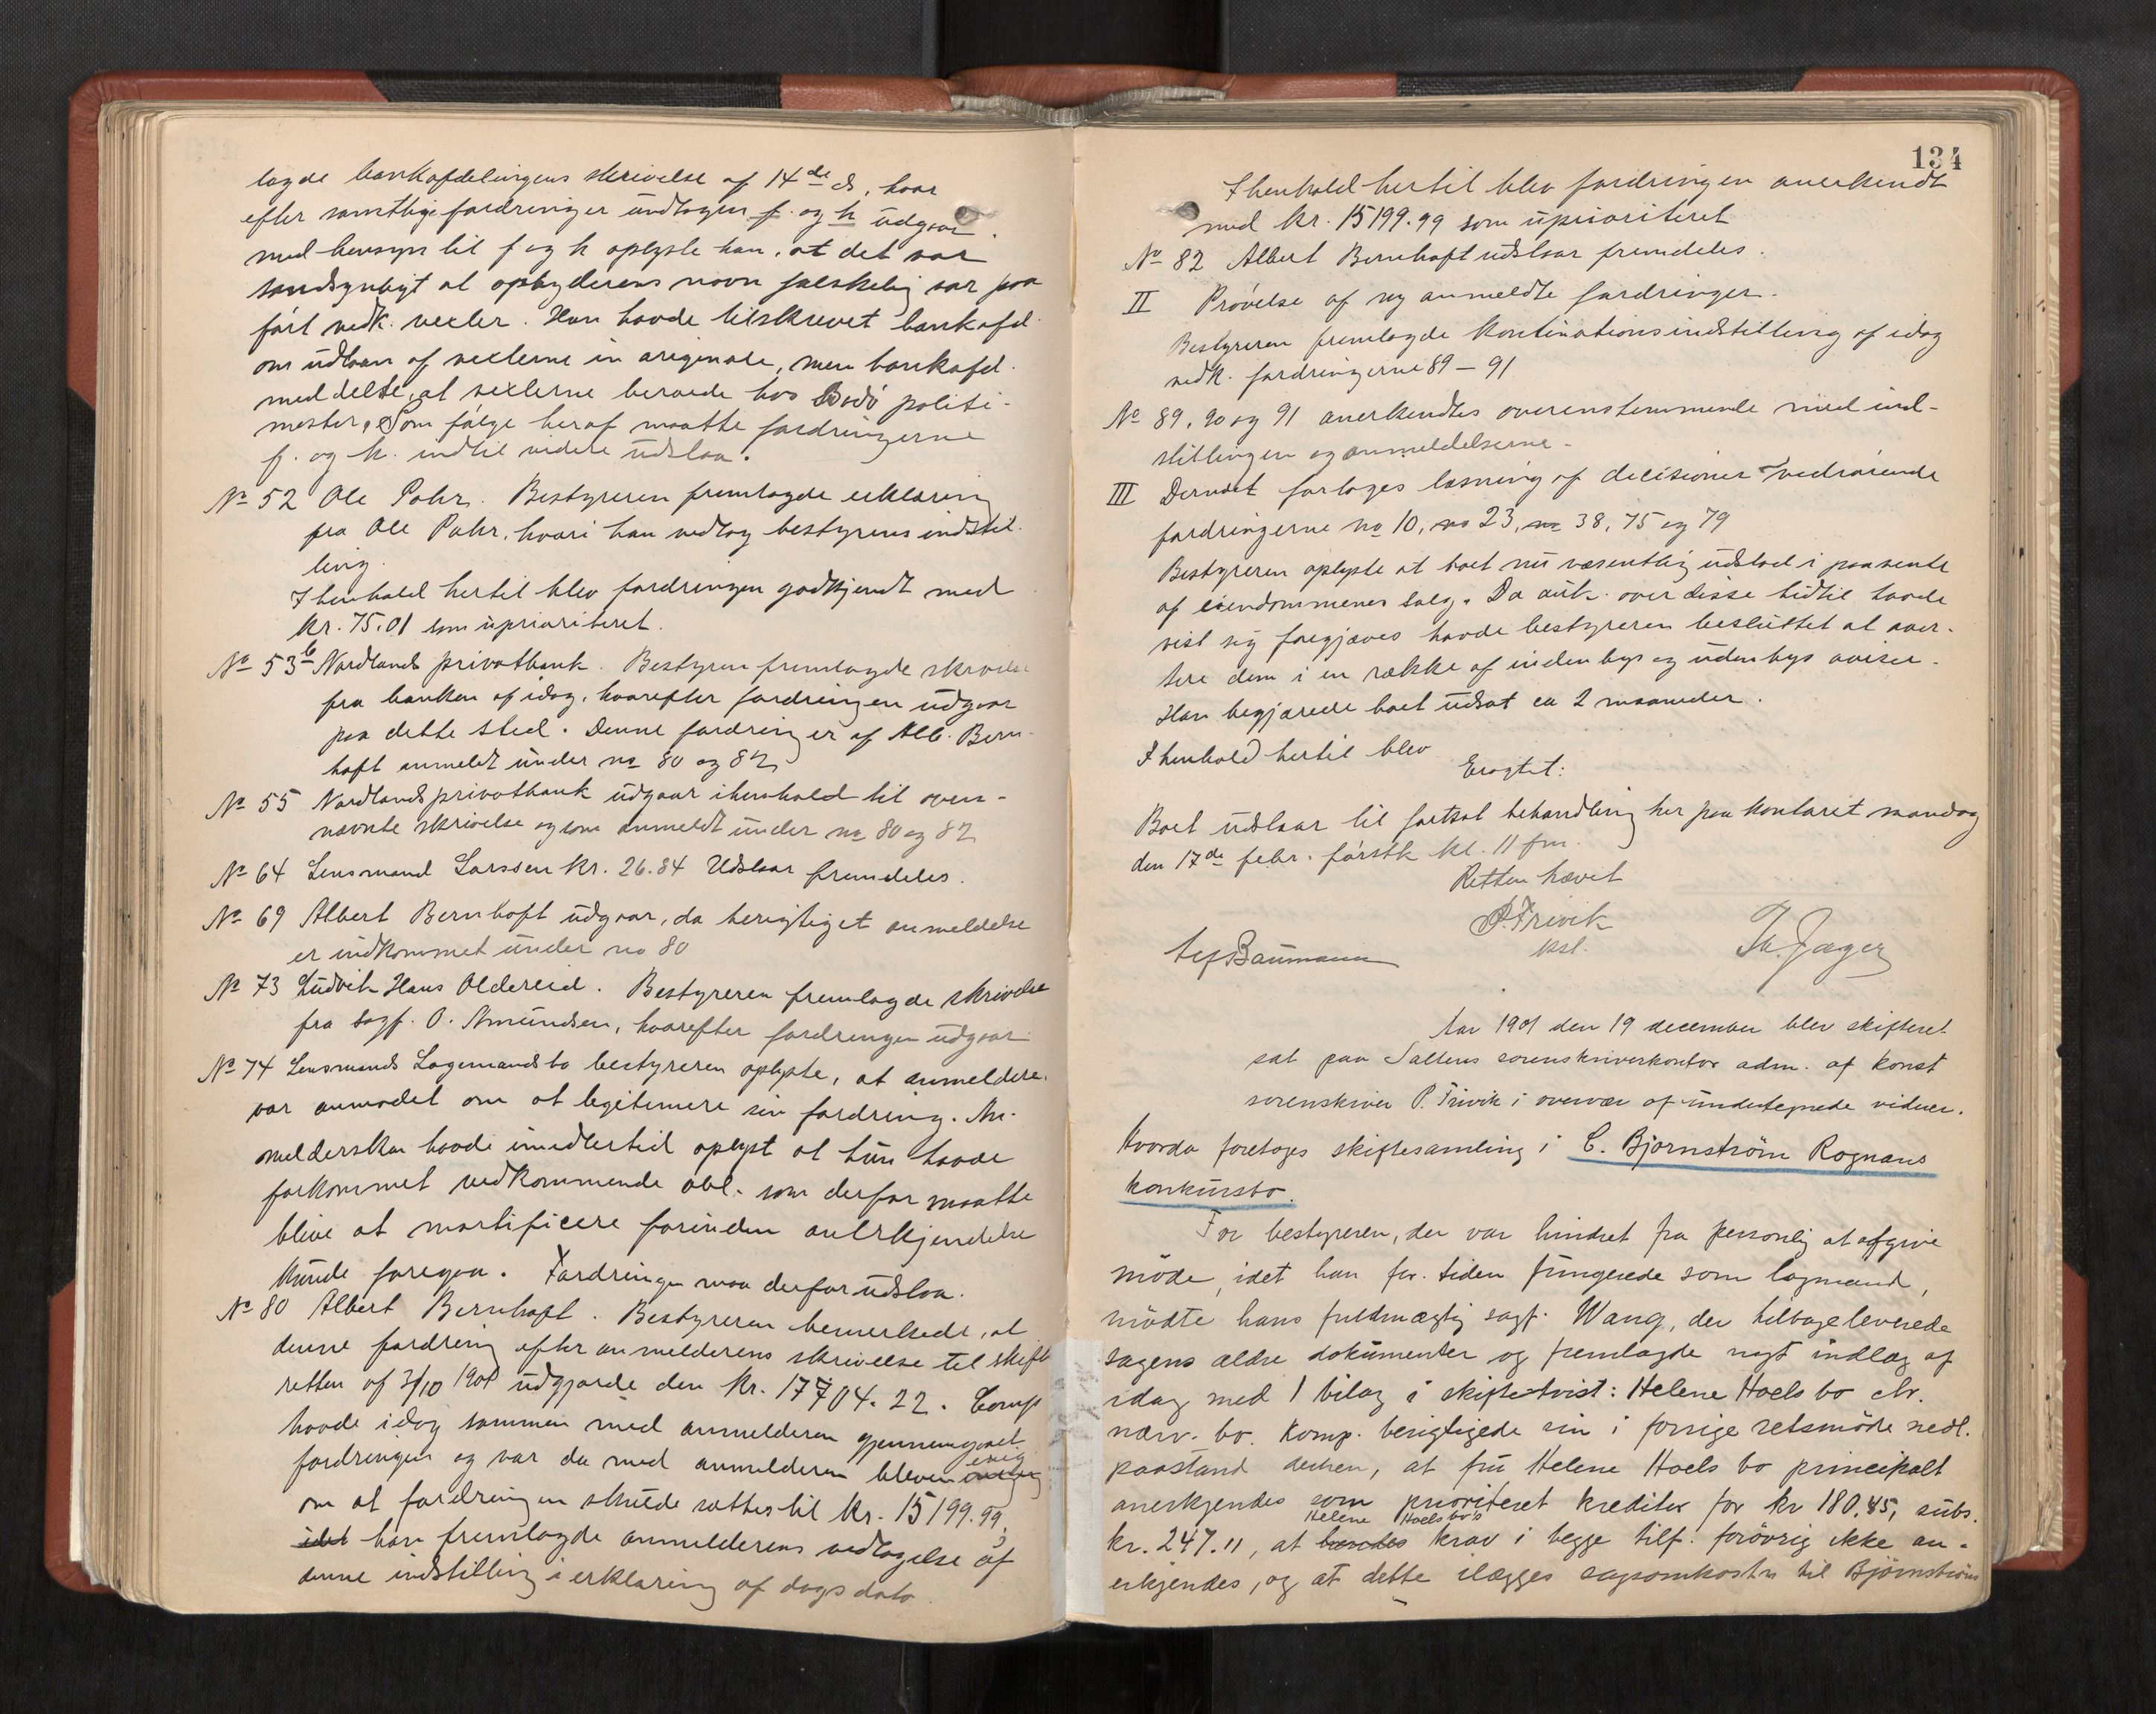 lagde bankafdelingens skrivelse af 14de ds, hvor
efter samtlige fordringer undtagen f. og h udgaar.
med hensyn til f og h oplyste han, at det var
sandsynligt at opbyderens navn falskelig var paa
ført vedk. vexler. Han havde tilskrevet bankafd.
om udlaan af vexlerne in originale, men bankafd.
meddelte, at vexlerne beroede hos Bodø politi-
mester. Som følge heraf maatte fordringerne
f. og h. indtil videre udstaa.
No 52 Ole Pahr. Bestyreren fremlagde erklæring
fra Ole Pahr, hvori han vedtog bestyrens indstil-
ling.
I henhold hertil blev fordringen godkjendt med
kr. 75.01 som uprioriteret.
No 53b Nordlands privatbank. Bestyren fremlagde skrivelse
fra banken af idag, hvorefter fordringen udgaar
paa dette sted. Denne fordring er af Alb. Bern-
hoft anmeldt under no 80 og 82
No 55 Nordlands privatbank udgaar i henhold til oven-
nævnte skrivelse og som anmeldt under no 80 og 82
No 64 Lensmand Larssen kr. 26.84 Udstaar fremdeles.
No 69 Albert Bernhoft udgaar, da berigtiget anmeldelse
er indkommet under no 80
No 73 Ludvik Hans Oldereid. Bestyreren fremlagde skrivelse
fra sagf. O. Amundsen, hvorefter fordringen udgaar
No 74 Lensmands Lagemands bo bestyreren oplyste, at anmeldere.
var anmodet om at legitimere sin fordring. An-
melderskan havde imidlertid oplyst at hun havde
forkommet vedkommende obl. som derfor maatte
blive at mortificere forinden anerkjendelse
kunde foregaa. Fordringen maa derfor udstaa.
No 80 Albert Bernhoft. Bestyreren bemerkede, at
denne fordring efter anmelderens skrivelse til skift
retten af 3/10 1901 udgjorde den kr. 17704.22. Comp
havde idag sammen med anmelderen gjennemgaaet
fordringen og var da med anmelderen bleven enig
om at fordringen skulde sættes til kr. 15199.99,
idet han fremlagde anmelderens vedtagelse af
denne indstilling i erklæring af dags dato.
134
I henhold hertil blev fordringen anerkendt
med kr. 15199.99 som uprioriteret
No 82 Albert Bernhoft udstaar fremdeles.
II Prøvelse af ny anmeldte fordringer.
Bestyreren fremlagde kontinationsindstilling af idag
vedk. fordringerne 89 – 91
No 89, 90 og 91 anerkendtes overensstemmende med ind-
stillingen og anmeldelserne.
III Dernæst fortoges læsning af decisioner vedrørende
fordringerne no 10, no 23, no 38, 75 og 79
Bestyreren oplyste at boet nu væsentlig udstod i paavente
af eiendommenes salg. Da auk. over disse hidtil havde
vist sig forgjæves havde bestyreren besluttet at aver-
tere dem i en række af indenbys og udenbys aviser.
Han begjærede boet udsat ca 2 maaneder.
I henhold hertil blev
Eragtet:
Boet udstaar til fortsat behandling her paa kontoret mandag
den 17de febr. førstk kl. 11 fm.
Retten hævet
P. Trivik
kst.
Leif Baumann
Th. Jæger
Aar 1901 den 19 december blev skifteret
sat paa Saltens sorenskriverkontor adm. af konst
sorenskriver P. Trivik i overvær af undertegnede vidner.
Hvorda foretoges skiftesamling i C. Bjørnstrøm Rognans
konkursbo.
For bestyreren, der var hindret fra personlig at afgive
møde, idet han for tiden fungerede som lagmand,
mødte hans fuldmægtig sagf. Wang, der tilbageleverede
sagens ældre dokumenter og fremlagde nyt indlæg af
idag med 1 bilag i skiftetvist: Helene Hoels bo ctr.
nærv. bo. Komp. berigtigede sin i forrige retsmøde nedl.
paastand derhen, at fru Helene Hoels bo principalt
anerkjendes som prioriteret kreditor for kr 180.45, subs.
kr. 247.11, at hendes Helene Hoels bo's krav i begge tilf. forøvrig ikke an-
erkjendes, og at dette ilægges sagsomkostn til Bjørnstrøms